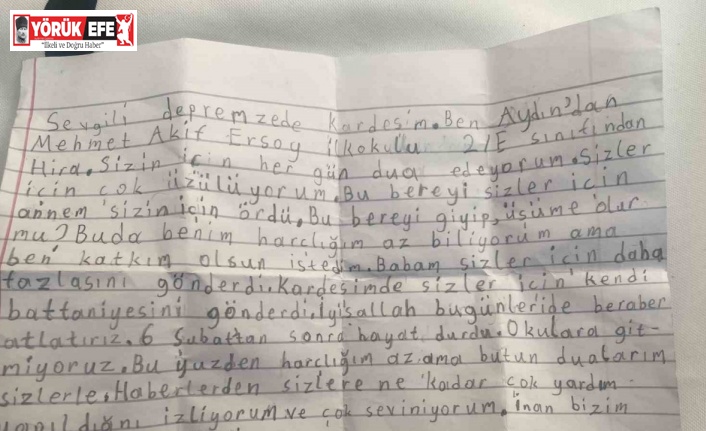 YÖRÜK EFE
"İlkeli ve Doğru Haber"
Sevgili depremzede kardeşim. Ben Aydın'dan
Mehmet Akif Ersoy ilkokulu 2/E sınıfından
Hira. Sizin için her gün dua edeyorum. Sizler
için çok üzülüyorum. Bu bereyi sizler için
annem sizin için ördü. Bu bereyi giyip, üşüme olur
mu? Buda benim harçlığım az biliyorum ama
ben katkım olsun istedim. Babam sizler için daha
fazlasını gönderdi. Kardeşimde sizler için kendi
battaniyesini gönderdi. İyisallah bugünleride beraber
atlatırız. 6 Şubattan sonra hayat durdu. Okulara git-
miyoruz. Bu yüzden harçlığım az ama bütun dualarım
sizlerle. Haberlerden sizlere ne kadar çok yardım
yapıldığını izliyorum ve çok seviniyorum. İnan bizim